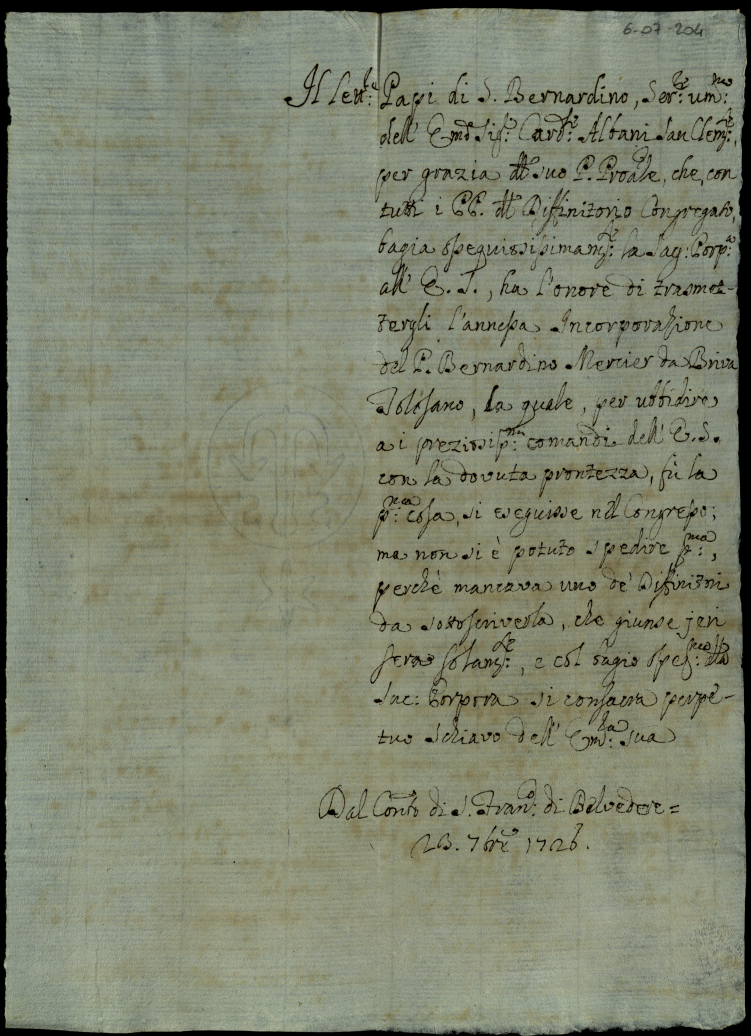 6-07-204
Il Lett:e Papi di S. Bernardino, Ser:re um:mo
dell' Emo Sig:r Card:le Albani San Clem:te,
per grazia del suo P. Proãle, che, con
tutti i PP. del Diffinitorio Congregato,
bagia ossequiosissimam:te la Sag: Porp:a
all' E. S., ha l'onore di trasmet-
tergli l'annessa Incorporazione
del P. Bernardino Mercier da Briva
Tolosano, la quale, per ubbidire
a i preziosis:mi comandi dell' E. S.
con la dovuta prontezza, fù la
p:ma cosa, si eseguisse nel Congresso;
ma non si è potuto spedire p:ma,
perchè mancava uno de' Diffinitori
da sottoscriverla, che giunse jeri
sera solam:te, e col bagio osseq:mo della
Sac: Porpora si consacra perpe-
tuo schiavo dell' Em:za sua
Dal Conṽto di S. Fran:co di Belvedere =
23. 7bre 1726.